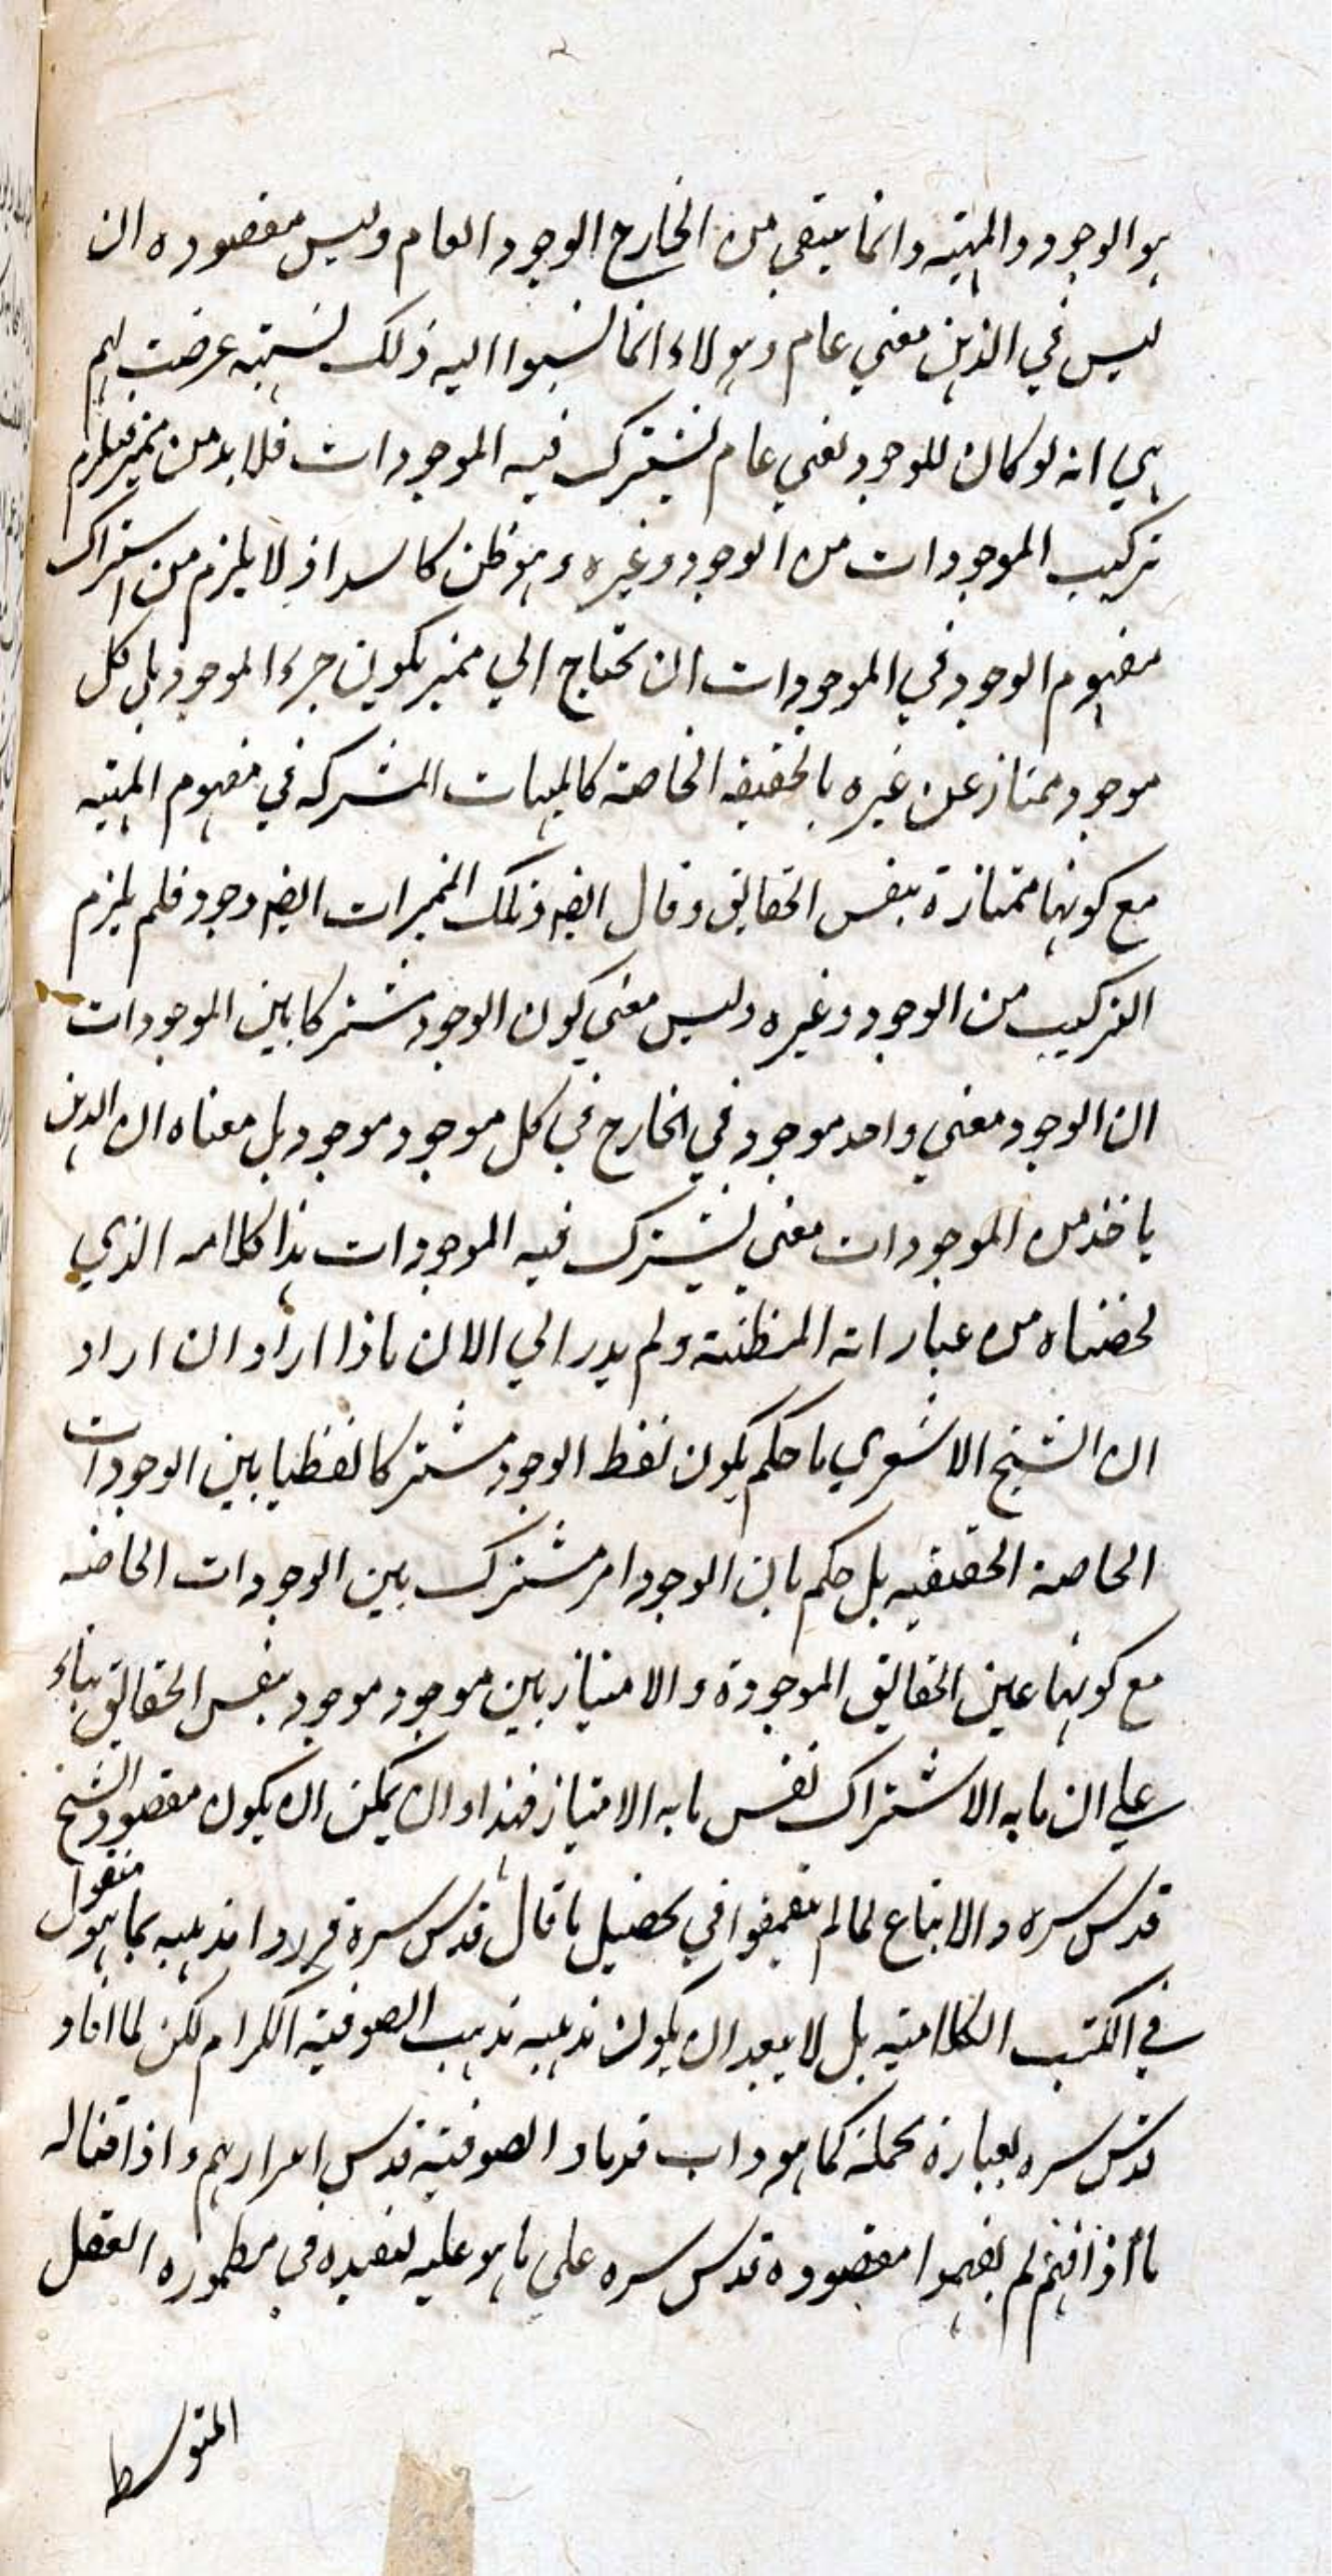 هو الوجود والمهية وانما ينتفي من الخارج الوجود العام وليس مقصوده ان
ليس في الذهن معني عام وهولاء انما نسبوا اليه ذلك لشبهة عرضت لهم
هي انه لو كان للوجود معني عام يشترك فيه الموجودات فلا بد من مميز فيلزم
تركيب الموجودات من الوجود وغيره وهو ظن كاسد اذ لا يلزم من اشتراك
مفهوم الوجود في الموجودات ان تحتاج الي مميز يكون جزء الموجود بل كل
موجود ممتاز عن غيره بالحقيقه الخاصة كالمهيات المشتركه في مفهوم المهيه
مع كونها ممتازة بنفس الحقايق وقال ايضه وتلك المميزات ايضه وجود فلم يلزم
التركيب من الوجود وغيره وليس معني كون الوجود مشتركا بين الموجودات
ان الوجود معني واحد موجود في الخارج في كل موجود موجود بل معناه ان الذهن
ياخذ من الموجودات معني يشترك فيه الموجودات هذا كلامه الذي
لخصناه من عباراته المطنبة ولم يدر الي الان ماذا اراد ان اراد
ان الشيخ الاشعري ما حكم بكون لفظ الوجود مشتركا لفظيا بين الوجودات
الخاصة الحقيقيه بل حكم بان الوجود امر مشترك بين الوجودات الخاصه
مع كونها عين الحقايق الموجودة والامتياز بين موجود موجود بنفس الحقايق بناء
علي ان ما به الاشتراك نفس ما به الامتياز فهذا وان يمكن ان يكون مقصود الشيخ
قدس سره والاتباع لما لم يتعمقوا في تحصيل ما قال قدس سره قرروا مذهبه بما هو منقول
في الكتب الكلامية بل لا يبعد ان يكون مذهبه مذهب الصوفية الكرام لكن لما افاد
قدس سره بعبارة مجملة كما هو داب قدماء الصوفية قدس اسرارهم واذ اقفاله
ما اذ افهم لم يفهموا مقصوده قدس سره علي ما هو عليه لتقيده في مطموره العقل
المتوسط